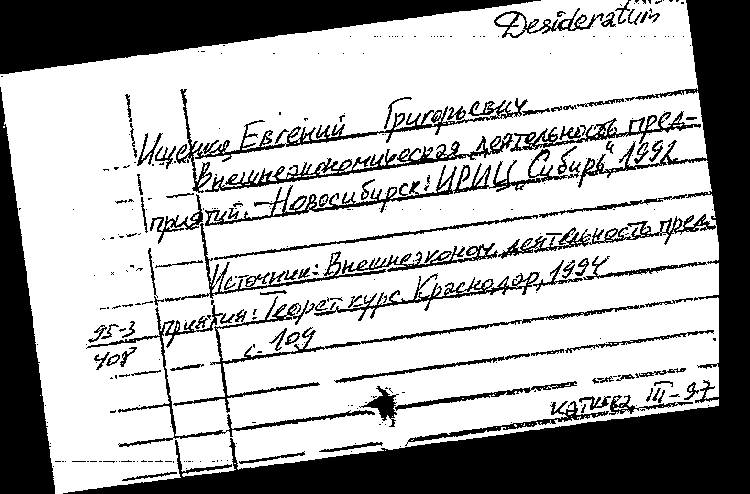 Desideratum
Ищенко Евгений Григорьевич
Внешнеэкономическая деятельность пред-
приятий. – Новосибирск: ИРИЦ „Сибирь“, 1992
Источник: Внешнеэконом. деятельность пред-
приятия: Теорет. курс. Краснодар, 1994
95-3
408
с. 109
III-97